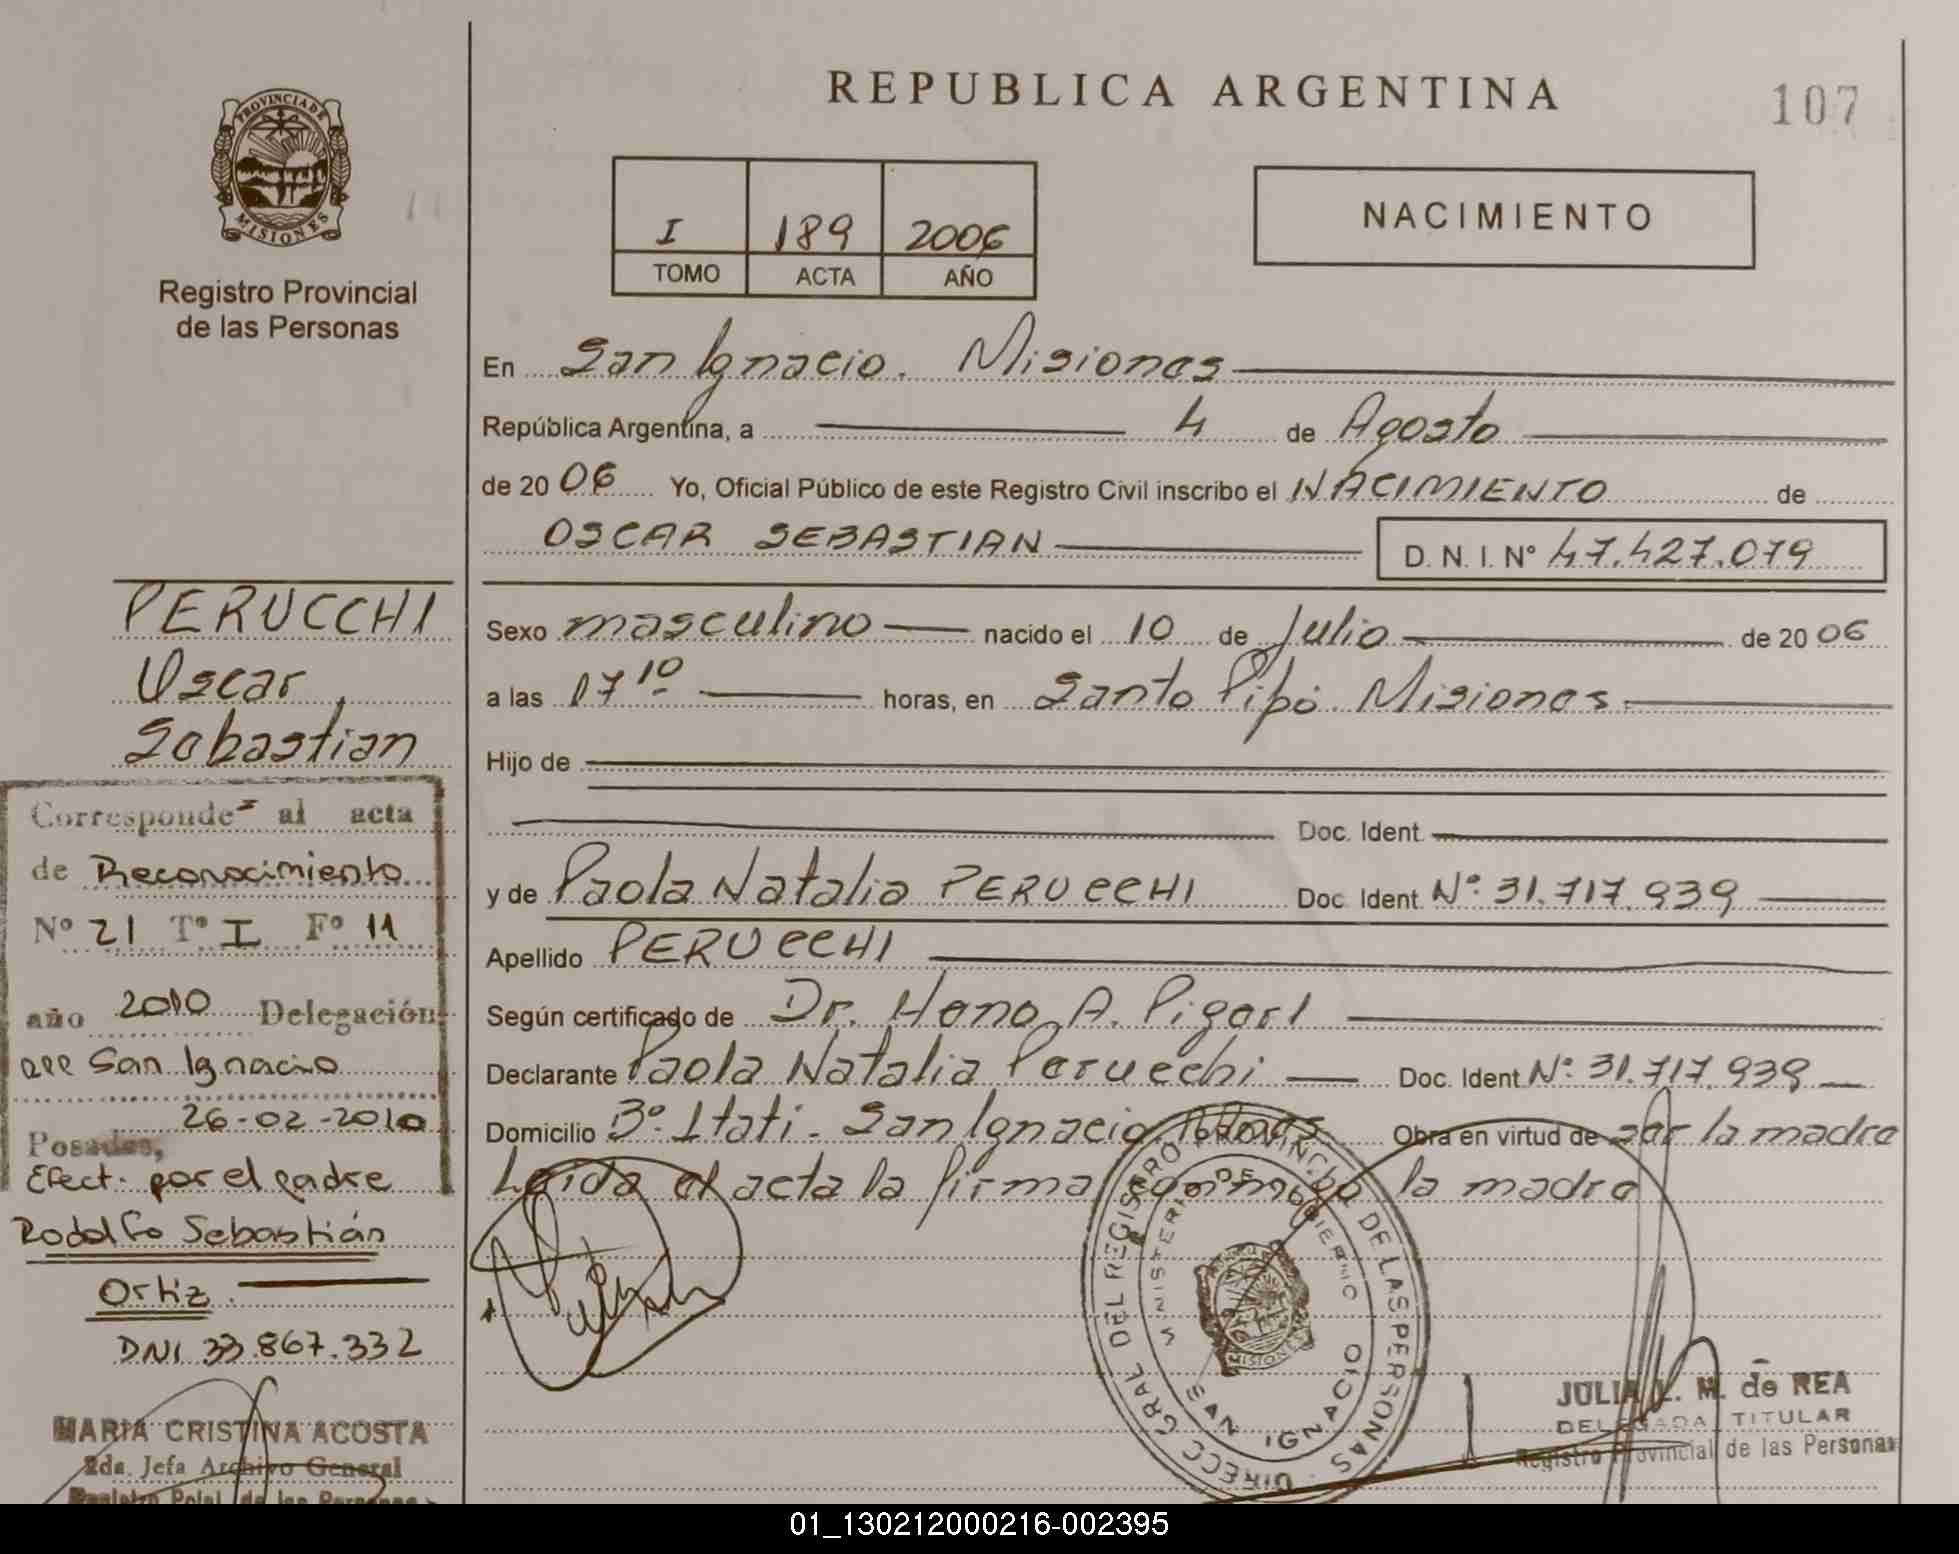 REPUBLICA ARGENTINA
107
PROVINCIA DE MISIONES
Registro Provincial
de las Personas
I 189 2006
TOMO ACTA AÑO
NACIMIENTO
En San Ignacio. Misiones
República Argentina, a 4 de Agosto
de 2006 Yo, Oficial Público de este Registro Civil inscribo el NACIMIENTO de
OSCAR SEBASTIAN D. N. I. N° 47.427.079
Sexo masculino nacido el 10 de Julio de 2006
a las 17 10 horas, en Santo Pipó. Misiones
Hijo de
Doc. Ident.
y de Paola Natalia PERUCCHI Doc. Ident N°: 31.717.939
Apellido PERUCCHI
Según certificado de Dr. A.
Declarante Paola Natalia Perucchi Doc. Ident N°: 31.717.939
Domicilio B° Itati - San Ignacio Obra en virtud de ser la madre
Leida el acta la firma conmigo la madre
PERUCCHI
Oscar
Sebastian
Corresponde al acta
de Reconocimiento
N° 21 T° I F° 11
año 2010 Delegación
San Ignacio
Posadas, 26-02-2010
Efect. por el padre
Rodolfo Sebastián
Ortiz.
DNI 33.867.332
MARIA CRISTINA ACOSTA
2da. Jefa Archivo General
Registro de las Personas
DIRECC GRAL DEL REGISTRO PROVINCIAL DE LAS PERSONAS
MINISTERIO DE GOBIERNO
MISIONES
SAN IGNACIO
JULIA L. M. de REA
DELEGADA TITULAR
Registro Provincial de las Personas
01_130212000216-002395